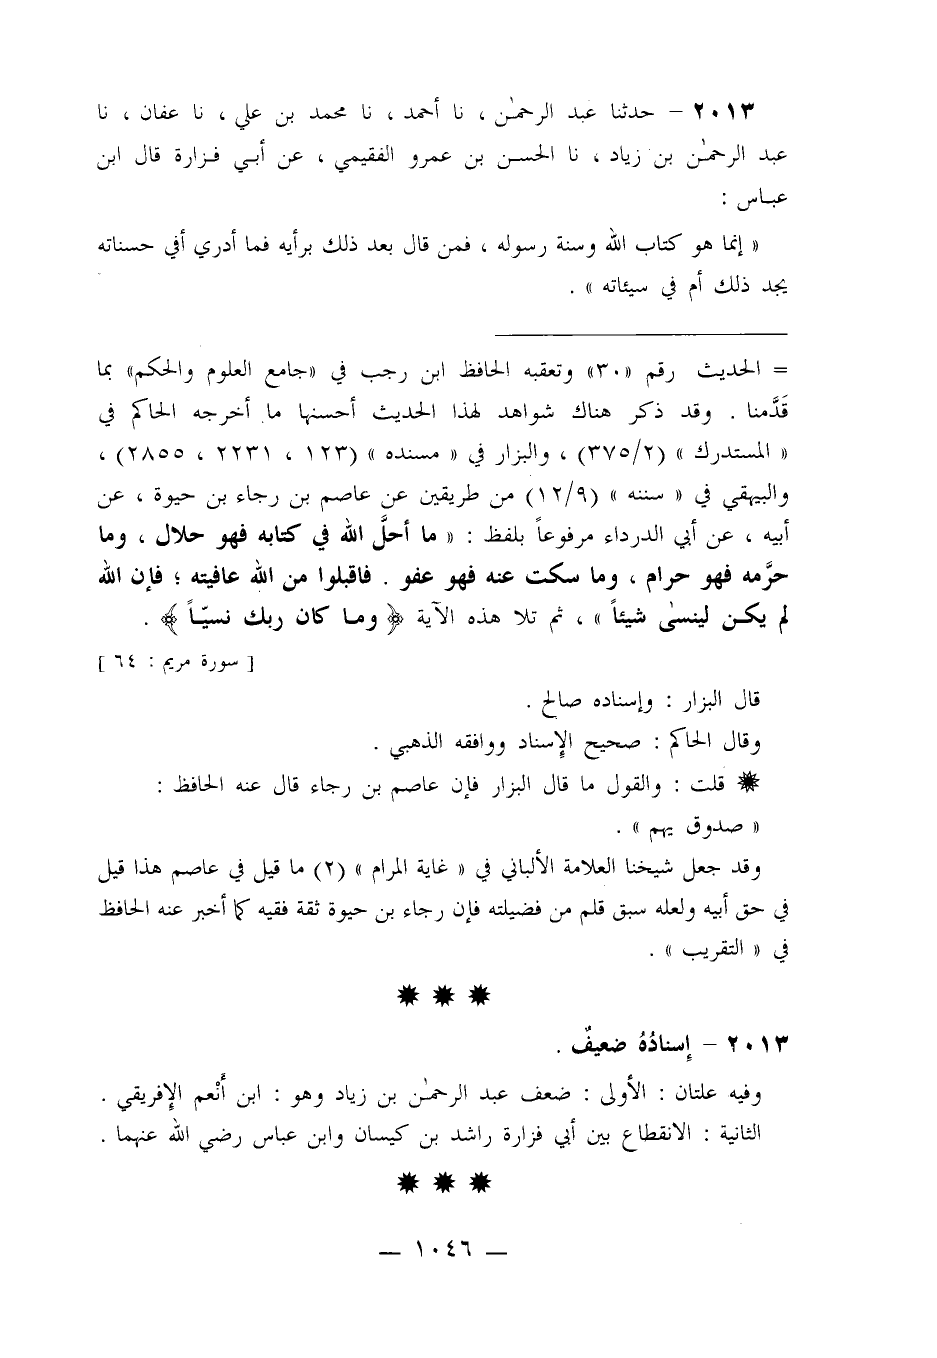 ٢٠١٣ – حدثنا عبد الرحمٰن ، نا أحمد ، نا محمد بن علي ، نا عفان ، نا
عبد الرحمٰن بن زياد ، نا الحسن بن عمرو الفقيمي ، عن أبي فزارة قال ابن
عباس :
« إنما هو كتاب الله وسنة رسوله ، فمن قال بعد ذلك برأيه فما أدري أفي حسناته
يجد ذلك أم في سيئاته » .
= الحديث رقم «٣٠» وتعقبه الحافظ ابن رجب في «جامع العلوم والحكم» بما
قَدَّمنا . وقد ذكر هناك شواهد لهذا الحديث أحسنها ما أخرجه الحاكم في
« المستدرك » (٣٧٥/٢) ، والبزار في « مسنده » (١٢٣ ، ٢٢٣١ ، ٢٨٥٥) ،
والبيهقي في « سننه » (١٢/٩) من طريقين عن عاصم بن رجاء بن حيوة ، عن
أبيه ، عن أبي الدرداء مرفوعاً بلفظ : « ما أحلَّ الله في كتابه فهو حلال ، وما
حرَّمه فهو حرام ، وما سكت عنه فهو عفو . فاقبلوا من الله عافيته ؛ فإن الله
لم يكن لينسىٰ شيئاً » ، ثم تلا هذه الآية ﴿ وما كان ربك نسيّاً ﴾ .
[ سورة مريم : ٦٤ ]
قال البزار : وإسناده صالح .
وقال الحاكم : صحيح الإسناد ووافقه الذهبي .
✹ قلت : والقول ما قال البزار فإن عاصم بن رجاء قال عنه الحافظ :
« صدوق يهم » .
وقد جعل شيخنا العلامة الألباني في « غاية المرام » (٢) ما قيل في عاصم هذا قيل
في حق أبيه ولعله سبق قلم من فضيلته فإن رجاء بن حيوة ثقة فقيه كما أخبر عنه الحافظ
في « التقريب » .
✹ ✹ ✹
٢٠١٣ – إسنادُهُ ضعيفٌ .
وفيه علتان : الأولى : ضعف عبد الرحمٰن بن زياد وهو : ابن أَنْعم الإفريقي .
الثانية : الانقطاع بين أبي فزارة راشد بن كيسان وابن عباس رضي الله عنهما .
✹ ✹ ✹
— ١٠٤٦ —